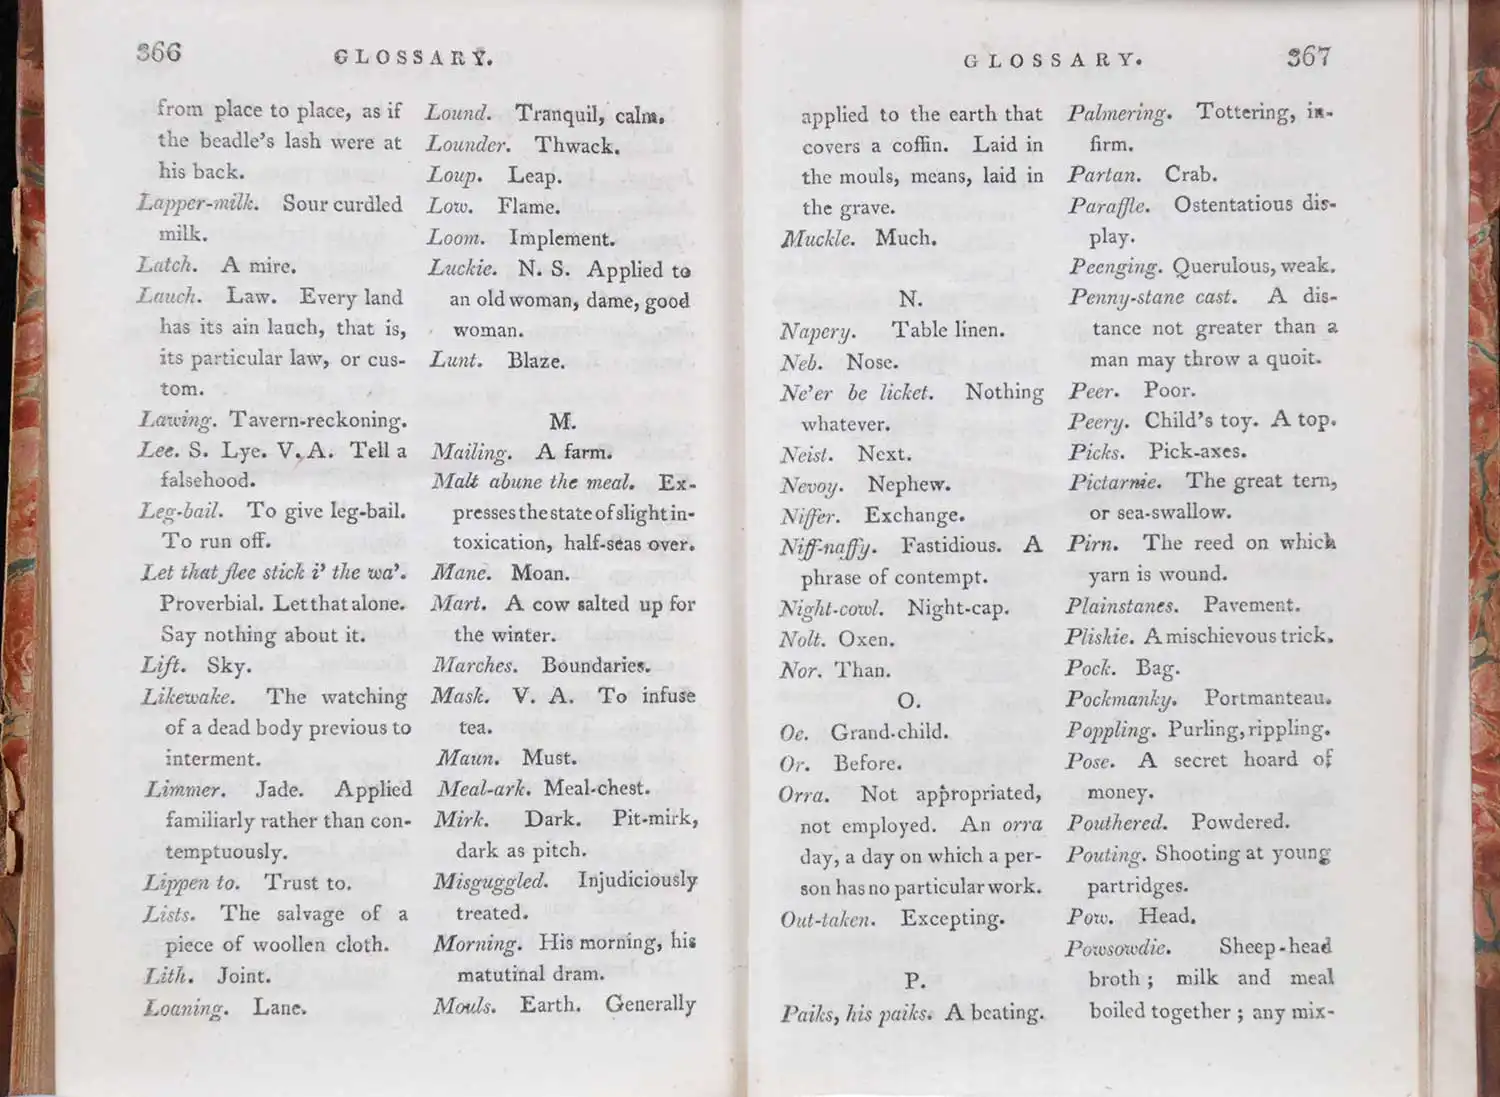 366
GLOSSARY.
from place to place, as if
the beadle's lash were at
his back.
Lapper-milk. Sour curdled
milk.
Latch. A mire.
Lauch. Law. Every land
has its ain lauch, that is,
its particular law, or cus-
tom.
Lawing. Tavern-reckoning.
Lee. S. Lye. V. A. Tell a
falsehood.
Leg-bail. To give leg-bail.
To run off.
Let that flee stick i' the wa'.
Proverbial. Let that alone.
Say nothing about it.
Lift. Sky.
Likewake. The watching
of a dead body previous to
interment.
Limmer. Jade. Applied
familiarly rather than con-
temptuously.
Lippen to. Trust to.
Lists. The salvage of a
piece of woollen cloth.
Lith. Joint.
Loaning. Lane.
Lound. Tranquil, calm.
Lounder. Thwack.
Loup. Leap.
Low. Flame.
Loom. Implement.
Luckie. N. S. Applied to
an old woman, dame, good
woman.
Lunt. Blaze.
M.
Mailing. A farm.
Malt abune the meal. Ex-
presses the state of slight in-
toxication, half-seas over.
Mane. Moan.
Mart. A cow salted up for
the winter.
Marches. Boundaries.
Mask. V. A. To infuse
tea.
Maun. Must.
Meal-ark. Meal-chest.
Mirk. Dark. Pit-mirk,
dark as pitch.
Misguggled. Injudiciously
treated.
Morning. His morning, his
matutinal dram.
Mouls. Earth. Generally
GLOSSARY.
367
applied to the earth that
covers a coffin. Laid in
the mouls, means, laid in
the grave.
Muckle. Much.
N.
Napery. Table linen.
Neb. Nose.
Ne'er be licket. Nothing
whatever.
Neist. Next.
Nevoy. Nephew.
Niffer. Exchange.
Niff-naffy. Fastidious. A
phrase of contempt.
Night-cowl. Night-cap.
Nolt. Oxen.
Nor. Than.
O.
Oe. Grand-child.
Or. Before.
Orra. Not appropriated,
not employed. An orra
day, a day on which a per-
son has no particular work.
Out-taken. Excepting.
P.
Paiks, his paiks. A beating.
Palmering. Tottering, in-
firm.
Partan. Crab.
Paraffle. Ostentatious dis-
play.
Peenging. Querulous, weak.
Penny-stane cast. A dis-
tance not greater than a
man may throw a quoit.
Peer. Poor.
Peery. Child's toy. A top.
Picks. Pick-axes.
Pictarnie. The great tern,
or sea-swallow.
Pirn. The reed on which
yarn is wound.
Plainstanes. Pavement.
Pliskie. A mischievous trick.
Pock. Bag.
Pockmanky. Portmanteau.
Poppling. Purling, rippling.
Pose. A secret hoard of
money.
Pouthered. Powdered.
Pouting. Shooting at young
partridges.
Pow. Head.
Powsowdie. Sheep-head
broth; milk and meal
boiled together; any mix-